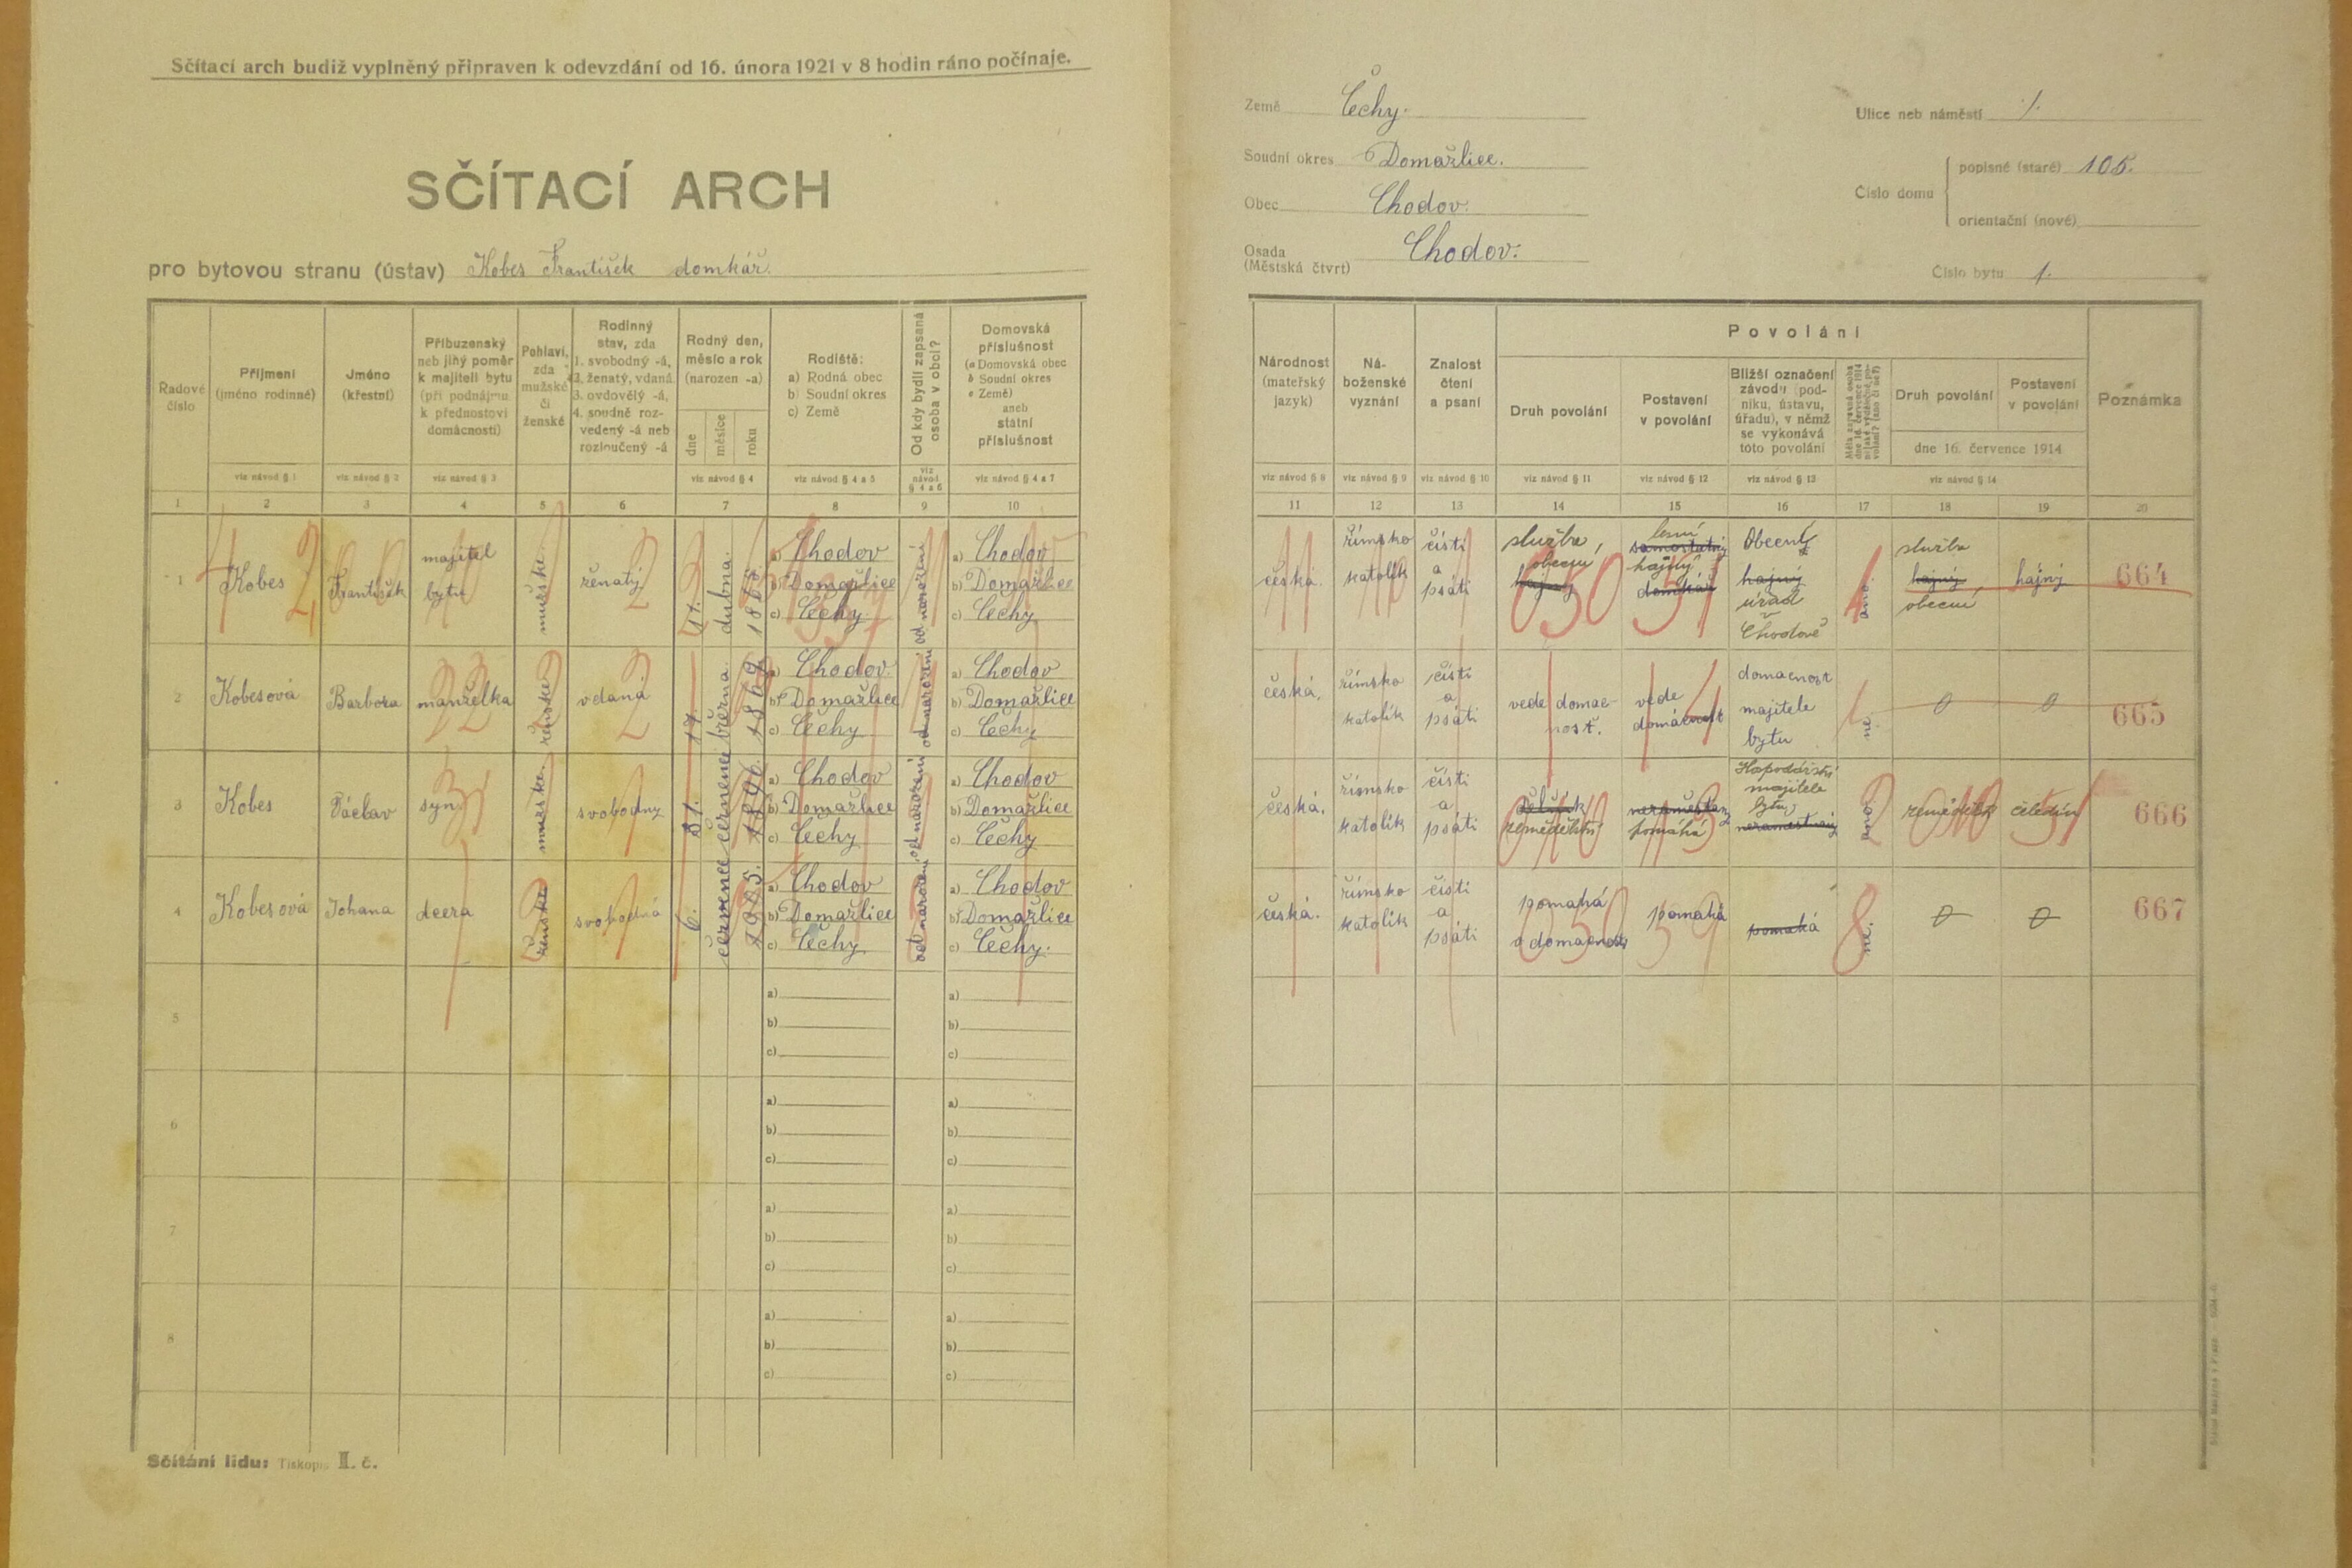 Sčítací arch budiž vyplněný připraven k odevzdání od 16. února 1921 v 8 hodin ráno počínaje.
SČÍTACÍ ARCH
pro bytovou stranu (ústav) Kobes František domkář.
Země Čechy.
Soudní okres Domažlice.
Obec Chodov.
Osada
(Městská čtvrt) Chodov.
Ulice neb náměstí
Číslo domu
popisné (staré) 105.
orientační (nové)
Číslo bytu 1.
Řadové číslo
Příjmení
(jméno rodinné)
viz návod § 1
Jméno
(křestní)
viz návod § 2
Příbuzenský
neb jiný poměr
k majiteli bytu
(při podnájmu
k přednostovi
domácnosti)
viz návod § 3
Pohlaví,
zda
mužské
či
ženské
Rodinný
stav, zda
1. svobodný -á,
2. ženatý, vdaná
3. ovdovělý -á,
4. soudně roz-
vedený -á neb
rozloučený -á
Rodný den,
měsíc a rok
(narozen -a)
dne
měsíce
roku
viz návod § 4
Rodiště:
a) Rodná obec
b) Soudní okres
c) Země
viz návod § 4 a 5
Od kdy bydlí zapsaná
osoba v obci?
viz
návod
§ 4 a 6
Domovská
příslušnost
(a Domovská obec
b Soudní okres
c Země)
aneb
státní
příslušnost
viz návod § 4 a 7
Národnost
(mateřský
jazyk)
viz návod § 8
Ná-
boženské
vyznání
viz návod § 9
Znalost
čtení
a psaní
viz návod § 10
Povolání
Druh povolání
viz návod § 11
Postavení
v povolání
viz návod § 12
Bližší označení
závodu (pod-
niku, ústavu,
úřadu), v němž
se vykonává
toto povolání
viz návod § 13
Druh povolání
Postavení
v povolání
dne 16. července 1914
viz návod § 14
Poznámka
1 2 3 4 5 6 7 8 9 10
11 12 13 14 15 16 17 18 19 20
1 Kobes František majitel bytu mužské ženatý 4. dubna
a) Chodov
b) Domažlice
c) Čechy
od narození
a) Chodov
b) Domažlice
c) Čechy
česká. římsko katolík čísti a psáti
služba, obecní hajný
lesní samostatný hajný domkář
Obecní hajný úřad v Chodově
ano.
služba hajný obecní
hajný
664
2 Kobesová Barbora manželka ženské vdaná 17. března 1869
a) Chodov
b) Domažlice
c) Čechy
od narození
a) Chodov
b) Domažlice
c) Čechy
česká. římsko katolík čísti a psáti
vede domac-
nost.
vede domácnost
domacnost majitele bytu
ne.
0 0
665
3 Kobes Václav syn mužské svobodný 31. července 1896.
a) Chodov
b) Domažlice
c) Čechy
od narození
a) Chodov
b) Domažlice
c) Čechy
česká. římsko katolík čísti a psáti
zemědělství
pomáhá
Hospodářství majitele bytu
ano.
zemědělství čeledín
666
4 Kobesová Johana dcera ženské svobodná 6. července 1905.
a) Chodov
b) Domažlice
c) Čechy
od narození
a) Chodov
b) Domažlice
c) Čechy.
česká. římsko katolík čísti a psáti
pomahá
v domacnosti
pomahá
pomahá
ne.
0 0
667
5
a)
b)
c)
a)
b)
c)
6
a)
b)
c)
a)
b)
c)
7
a)
b)
c)
a)
b)
c)
8
a)
b)
c)
a)
b)
c)
Sčítání lidu: Tiskopis II. č.